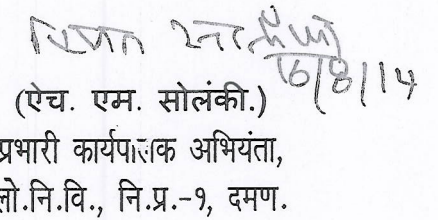 16/8/14
(ऐच. एम. सोलंकी.)
प्रभारी कार्यपालक अभियंता,
लो.नि.वि., नि.प्र.-१, दमण.